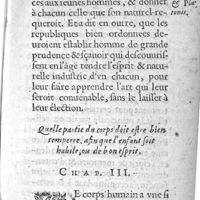 ces aux jeunes hommes, & donner
à chacun celle que son naturel re-
queroit. Et a dit en outre, que les
republiques bien ordonnees de-
uroient establir homme de grande
prudence & sçauoir qui descouuris-
sent en l'âge tendre l'esprit & natu-
relle industrie d'vn chacun, pour
leur faire apprendre l'art qui leur
seroit conuenable, sans le laisser à
leur election.
& Pla-
tonis,
Quelle partie du corps doit estre bien
temperee, afin que l'enfant soit
habile, ou de bon esprit.
CHAP. III.
LE corps humain a vne si